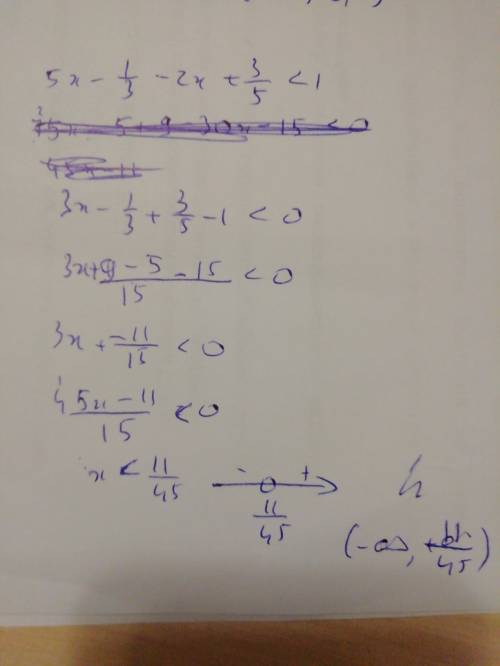 5x - 1/3 - 2x + 3/5 < 1
3x - 1/3 + 3/5 - 1 < 0
3x + (9 - 5 - 15)/15 < 0
3x + -11/15 < 0
(45x - 11)/15 < 0
x < 11/45
- +
11/45
(-∞, 11/45)